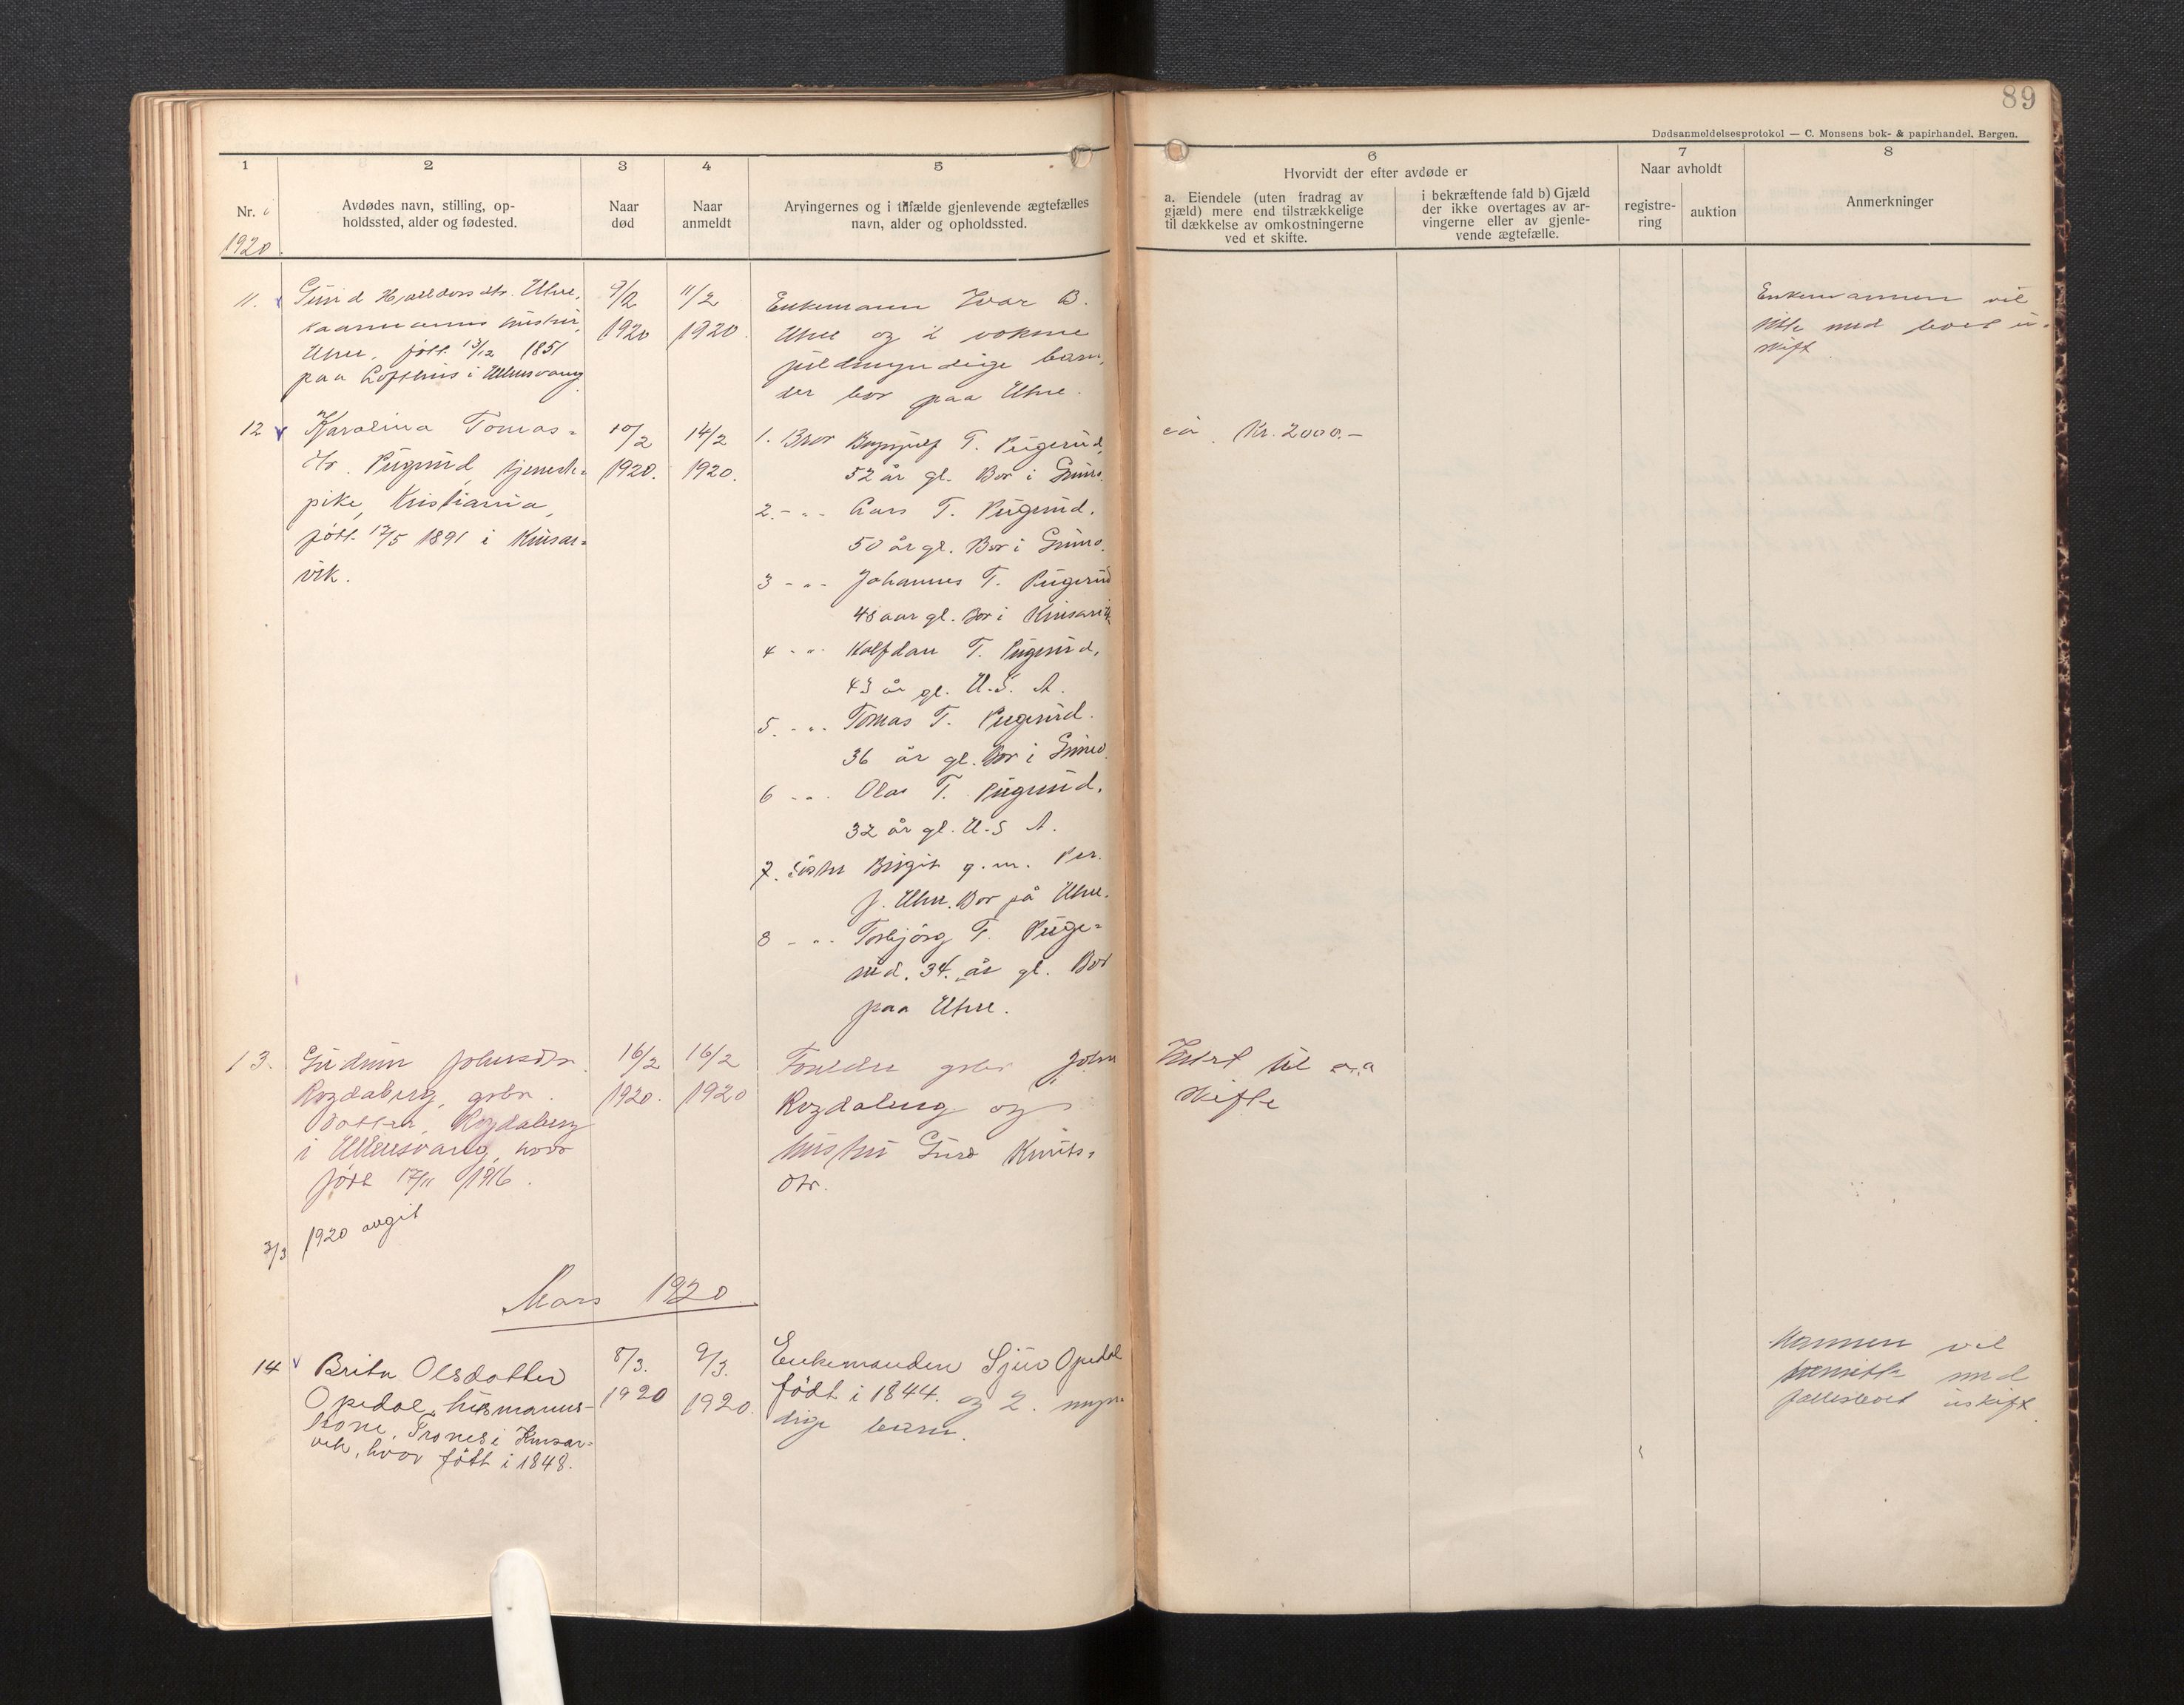 89
Dødsanmeldelsesprotokol — C. Monsens bok- & papirhandel, Bergen.
1 2 3 4 5 6 7 8
Nr.
1920
Avdødes navn, stilling, op-
holdssted, alder og fødested.
Naar
død
Naar
anmeldt
Arvingernes og i tilfælde gjenlevende ægtefælles
navn, alder og opholdssted.
Hvorvidt der efter avdøde er
a. Eiendele (uten fradrag av
gjæld) mere end tilstrækkelige
til dækkelse av omkostningerne
ved et skifte.
i bekræftende fald b) Gjæld
der ikke overtages av ar-
vingerne eller av gjenle-
vende ægtefælle.
Naar avholdt
registre-
ring
auktion
Anmerkninger
11.
Hjalldorsdtr. Utne,
kaarmanns hustru,
Utne, født 13/12 1851
paa Lofthus i Ullensvang
9/2
1920
11/2
1920
Enkemann Ivar B.
Utne og 2 voksne
fuldmyndige barn,
der bor paa Utne.
Enkemannen vil
sitte med boet u-
skift
12
Karolina Tomas-
dtr. tjeneste-
pike, Kristiania,
født 12/5 1891 i Kinsar-
vik.
10/2
1920.
14/2
1920.
1. Bror T.
52 år gl. Bor i Grimo.
2. - " - Lars T.
50 år gl. Bor i Grimo.
3 - " - Johannes T.
48 aar gl. Bor i Kinsarvik
4 - " - Halfdan T.
43 år gl. U.S.A.
5. - " - Tomas T.
36 år gl. Bor i Grimo.
6 - " - Olav T.
32 år gl. U.S A.
7. Søster Birgit g.m. Per
J. Utne. Bor på Utne.
8 - " - Torbjørg T.
34. år gl. Bor
paa Utne.
ca. Kr. 2000.-
13.
Gudrun Johnsdtr.
gbr.
datter,
i Ullensvang, hvor
født 17/11 1916.
16/2
1920.
16/2
1920
Foreldre gbr John
og
hustru Guro Knuts-
dtr.
til
skifte
3/3 1920 avgit
Mars 1920.
14
Brita Olsdotter
Opedal, husmanns-
kone, Trones i Kinsar-
vik, hvor født i 1848.
8/3.
1920
9/3.
1920.
Enkemanden Sjur Opedal
født i 1844. og 2. myn-
dige barn.
Mannen vil
med
fællesboet uskift.